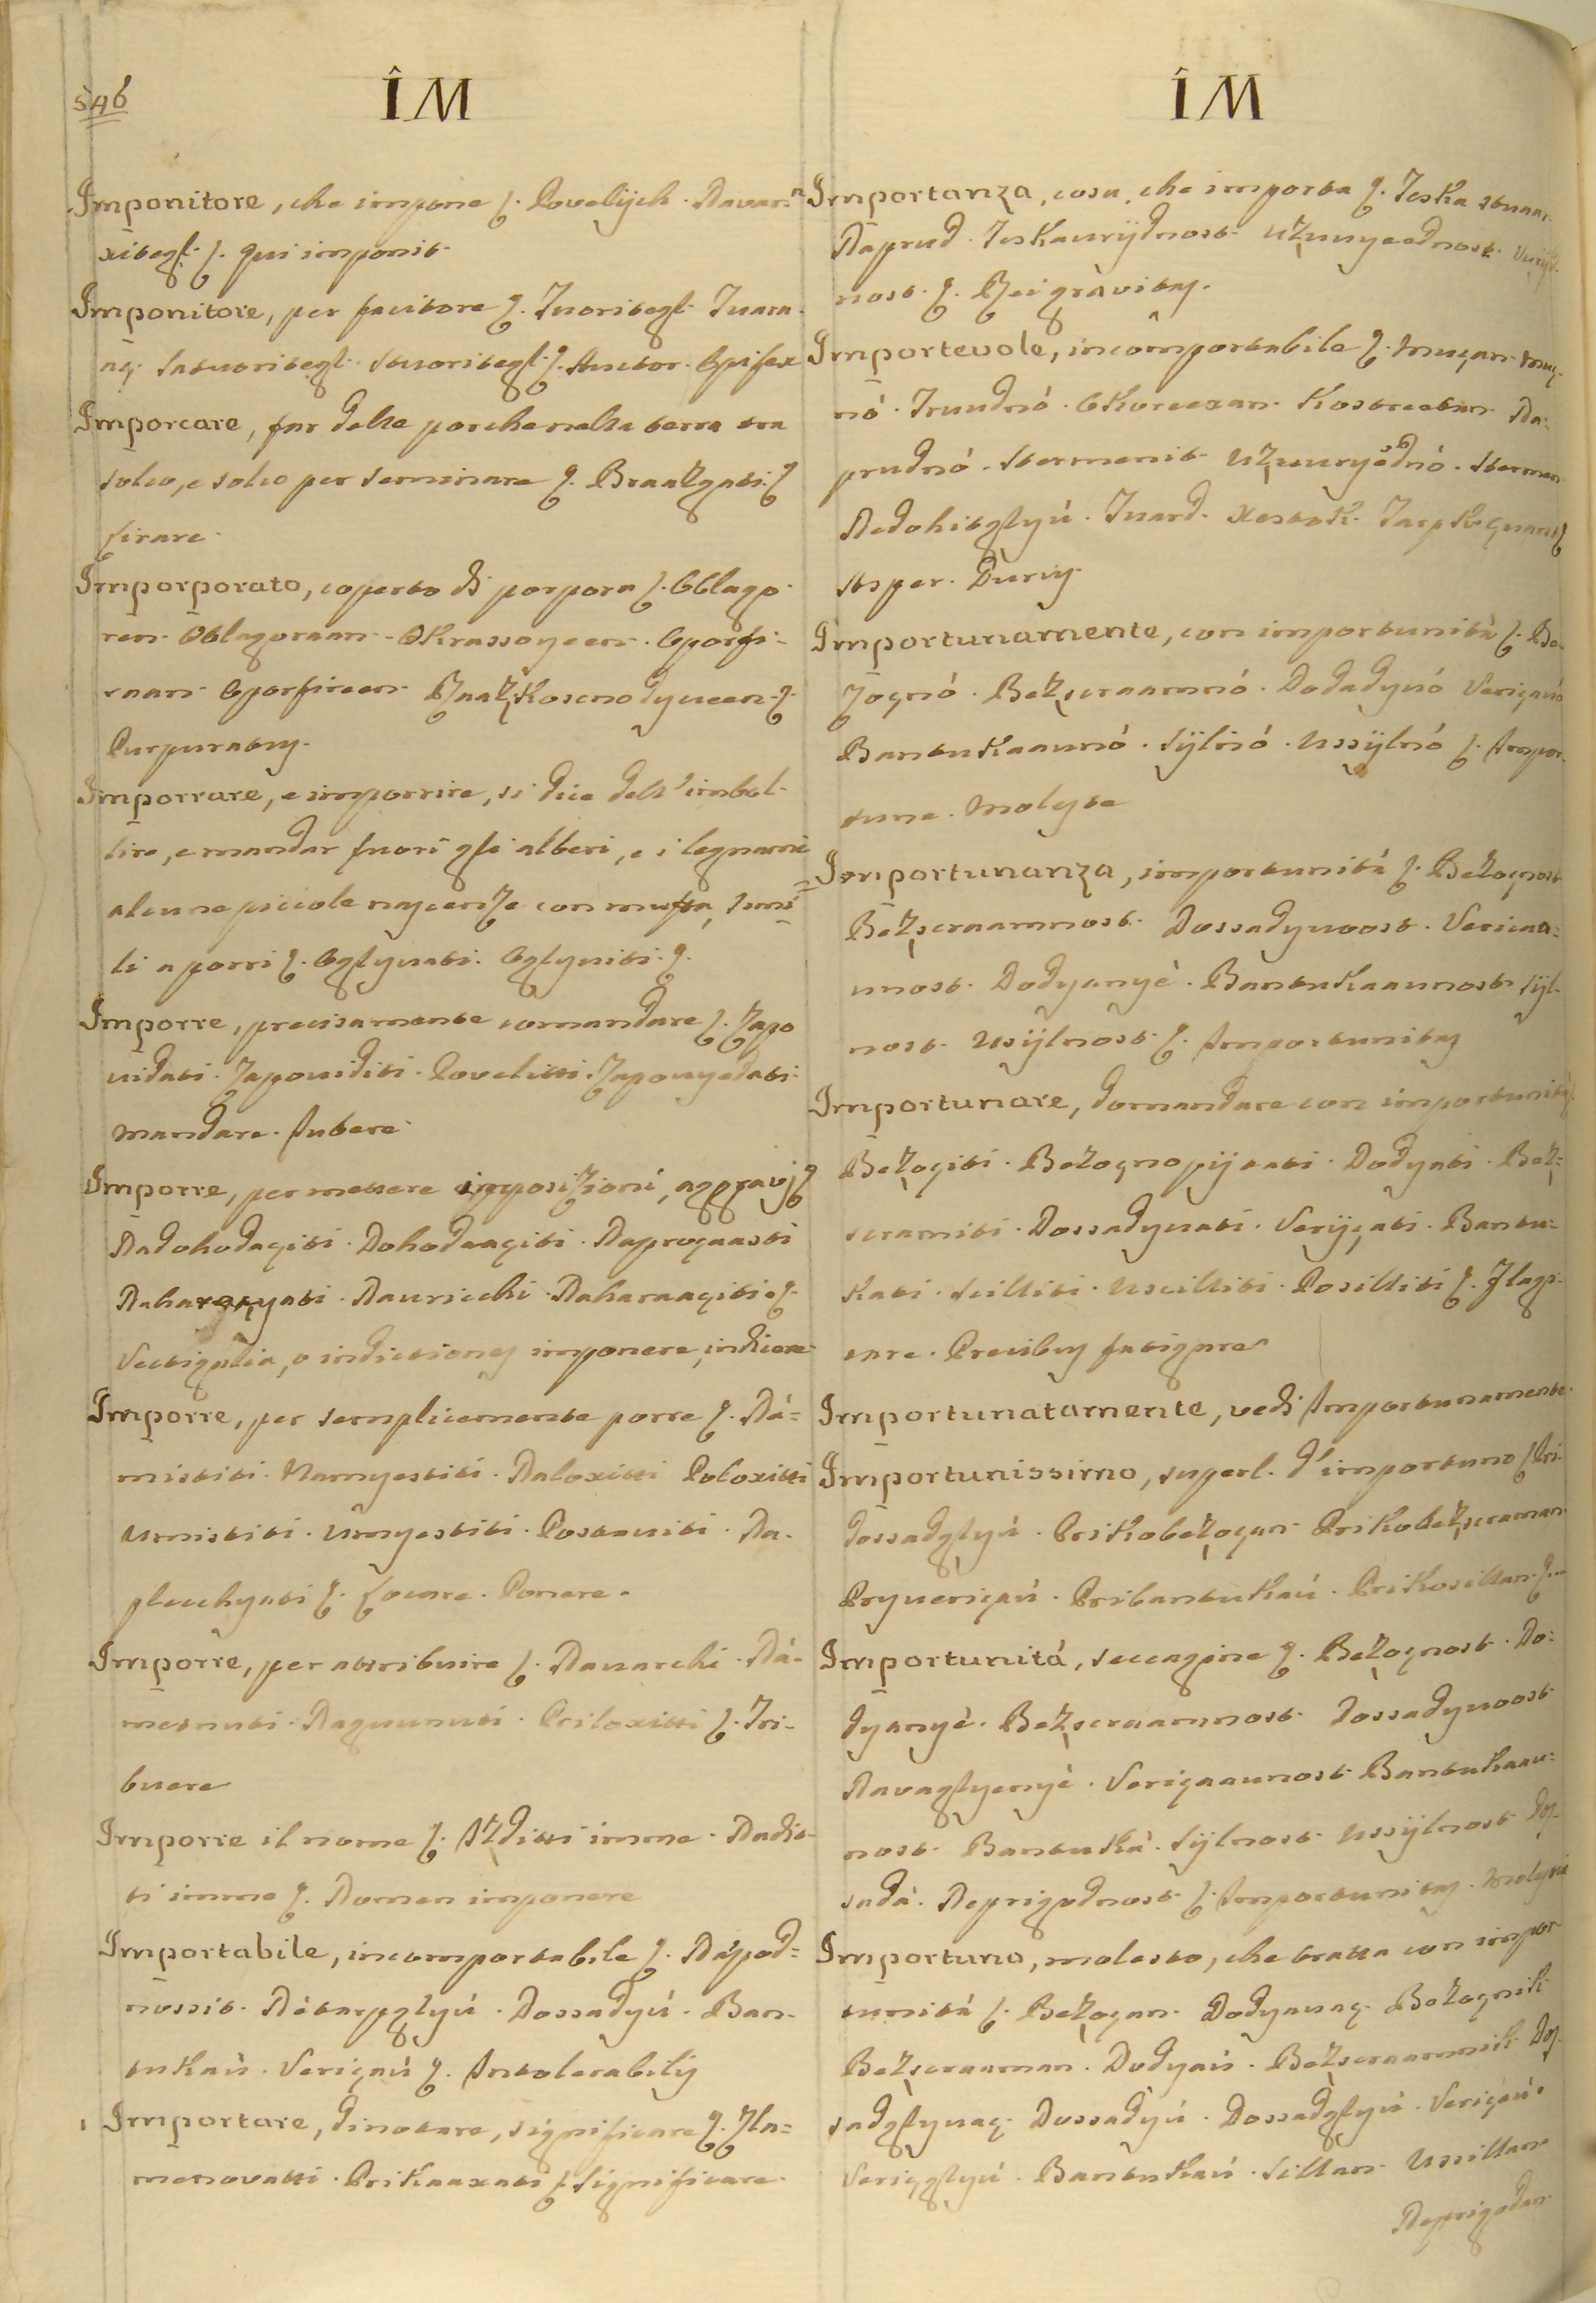 546
ÎM
Imponitore, che impone ſ. Povelijch. Navar
xitegl. ſ. qui imponit
Imponitore, per facitore ſ. Tvoritegl. Tvara
aç. Satvoritegl. Stvoritegl. ſ. Auctor. Opifex
Imporcare, far delle porche nella terra tra
solco, e solco per seminare ſ. Braazgati. ſ
lirare
Imporporato, coperto di porpora ſ. Oblago
ren. Oblagoraan. Okrassoyeen. Oporfi-
raan. Oporfireen. Koscnodyveen. ſ.
Purpuratus.
Imporrare, e imporrire, si dice dell' imbol-
lire, e mandar fuori gli alberi, e i legnami
alcune picciole nascenze con muffa, simi
li a porri ſ. Oglyvati. Oglyviti. ſ.
Imporre, precisamente comandare ſ. Zapo
vidati. Zapoviditi. Povelitti. Zapovyedati.
Mandare. Iubere.
Imporre, per mettere imposizioni, aggravj ſ
Nadohodaçiti. Dohodaaçiti. Naprogaasti
Navricchi. Naharaaçiti. ſ.
Vectigalia, o indictiones imponere, indicere
Imporre, per semplicemente porre ſ. Na=
mistiti. Namyestiti. Naloxitti Poloxitti
Umistiti. Umyestiti. Postaviti. Na.
plecchyati ſ. Locare. Ponere.
Imporre, per attribuire ſ. Navarchi. Na=
metnuti. Nagnunuti. Priloxitti ſ. Tri-
buere
Imporre il nome ſ. Izditti imme. Nadit
ti imme ſ. Nomen imponere
Importabile, incomportabile ſ. Nàpod=
nossit. Nètarpglyú. Dossadyú. Ban-
tukaù. Verigaú ſ. Intolerabilis
Importare, dinotare, significare ſ. Zla=
menovatti. Prikaaxati ſ. Significare.
ÎM
Importanza, cosa, che importa ſ. Teska stvaar
Naprud. Teskavrijdnost. Uzvuyeednost. Vrijd
nost. ſ. Rei gravitas.
Importevole, incomportabile ſ. Muçan. Muç-
nó. Trudnó. Okoreexan. Kostreetan. Na:
prudnó. Stermenit. Uzvuryednó. Stermen
Nedohitglyú. Tvard. Xestok. Tarpk
Asper. Durus
Importunamente, con importunità ſ. Be-
zoçnó. Bezscraamnó. Dodadyvó Verigavó
Bantukaavnó. Sijlnó. Ussijlnó ſ. Impor-
tune. Moleste
Importunanza, importunità ſ. Bezoçnost
Bezscraamnost. Dossadyvoost. Verigaa=
vnost. Dodyanyè. Bantukaavnost. Sijl-
nost. Usijlnost. ſ. Importunitas
Importunare, domandare con importunità ſ.
Bezoçiti. Bezoçnopijtati. Dodyati. Bez=
scramiti. Dossadyvati. Verijgati. Bantu=
kati. Scilliti. Uscilliti. Posilliti ſ. Flagi-
tare. Precibus fatigare
Importunatamente, vedi Importunamente
Importunissimo, superl. d' importuno ſ Pri.
dossadglyú. Prikobezoçan. Prikobezscraman.
Pryverigaú. Pribantukaú. Prikosillan. ſ.
Importunità, seccagine ſ. Bezoçnost. Do=
dyanyè. Bezscraamnost. Dossadyvoost
Navaglyenyè. Verigaavnost Bantukaav=
nost. Bantukà. Sijlnost. Ussijlnost. Dos-
sadà. Neprigodnost ſ. Importunitas. Molestia
Importuno, molesto, che tratta con impor
tunità ſ. Bezoçan. Dodyavaç. Bezoçnik
Bezscraaman. Dodyaú. Bezscraamnik. Dos-
sadglyvaç. Dossadyú. Dossadglyú. Verigaú.
Verigglyú. Bantukaú. Sillan. Ussillan
Neprigodan.